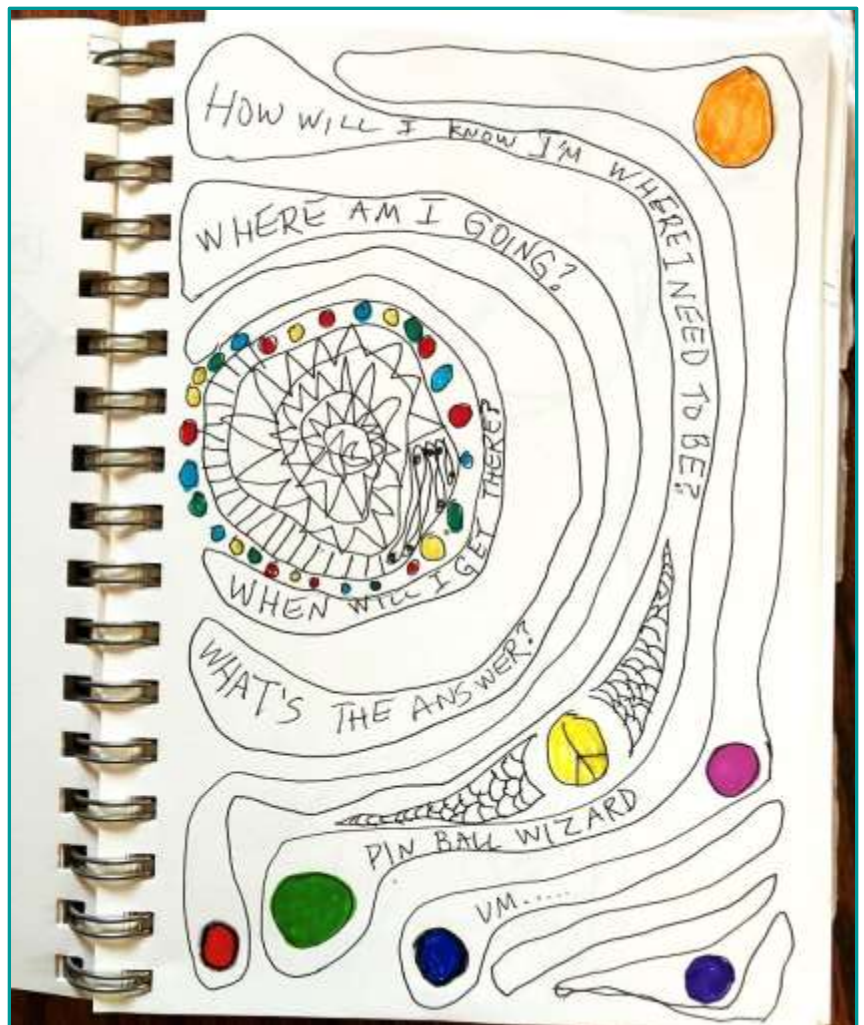 HOW WILL I KNOW I'M WHERE I NEED TO BE?
WHERE AM I GOING?
WHEN WILL I GET THERE?
WHAT'S THE ANSWER?
PIN BALL WIZARD
UM.....